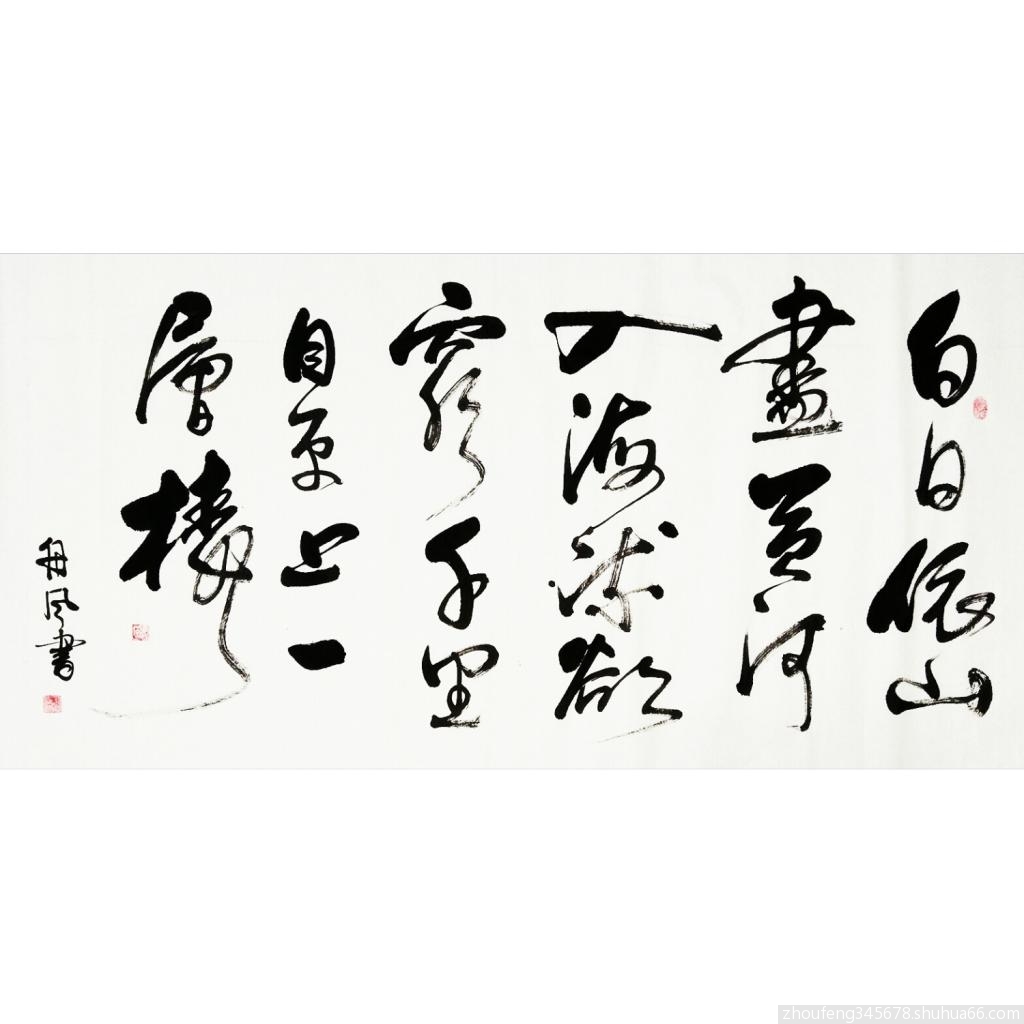 白日依山
盡黄河
入海流欲
窮千里
目更上一
層樓
舟风書
zhoufeng345678.shuhua66.com